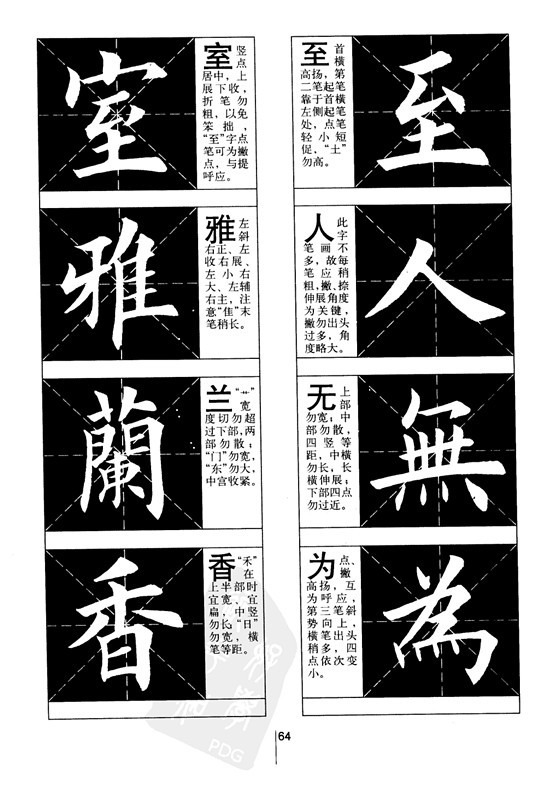 室
室 竖点
居中，上
展下收，
折笔勿
粗，以免
笨拙，
“至”字点
笔可为撇
点，与提
呼应。
雅
雅 左斜
右正、左
收右展、
左小右
大、左辅
右主，注
意“隹”末
笔稍长。
蘭
兰 “艹”宽
度切勿超
过下部，两
部勿散；
“门”勿宽，
“东”勿大，
中宫收紧。
香
香 “禾”在
上半部时
宜宽、宜
扁，中竖
勿长。“日”
勿宽，横
笔等距。
至
至 首横
高扬，第
二笔起笔
靠于首横
左侧起笔
处，点笔
轻小短
促，“土”
勿高。
人
人 此字
笔画不
多，故每
笔应稍
粗，撇、捺
伸展角度
为关键，
撇勿出头
过多，角
度略大。
無
无 上部
勿宽；中
部勿散，
四竖等
距，中横
勿长，长
横伸展；
下部四点
勿过近。
為
为 点、撇
高扬，互
为呼应，
第三笔斜
势向上，
横笔出头
稍多，四
点依次变
小。
64
PDG